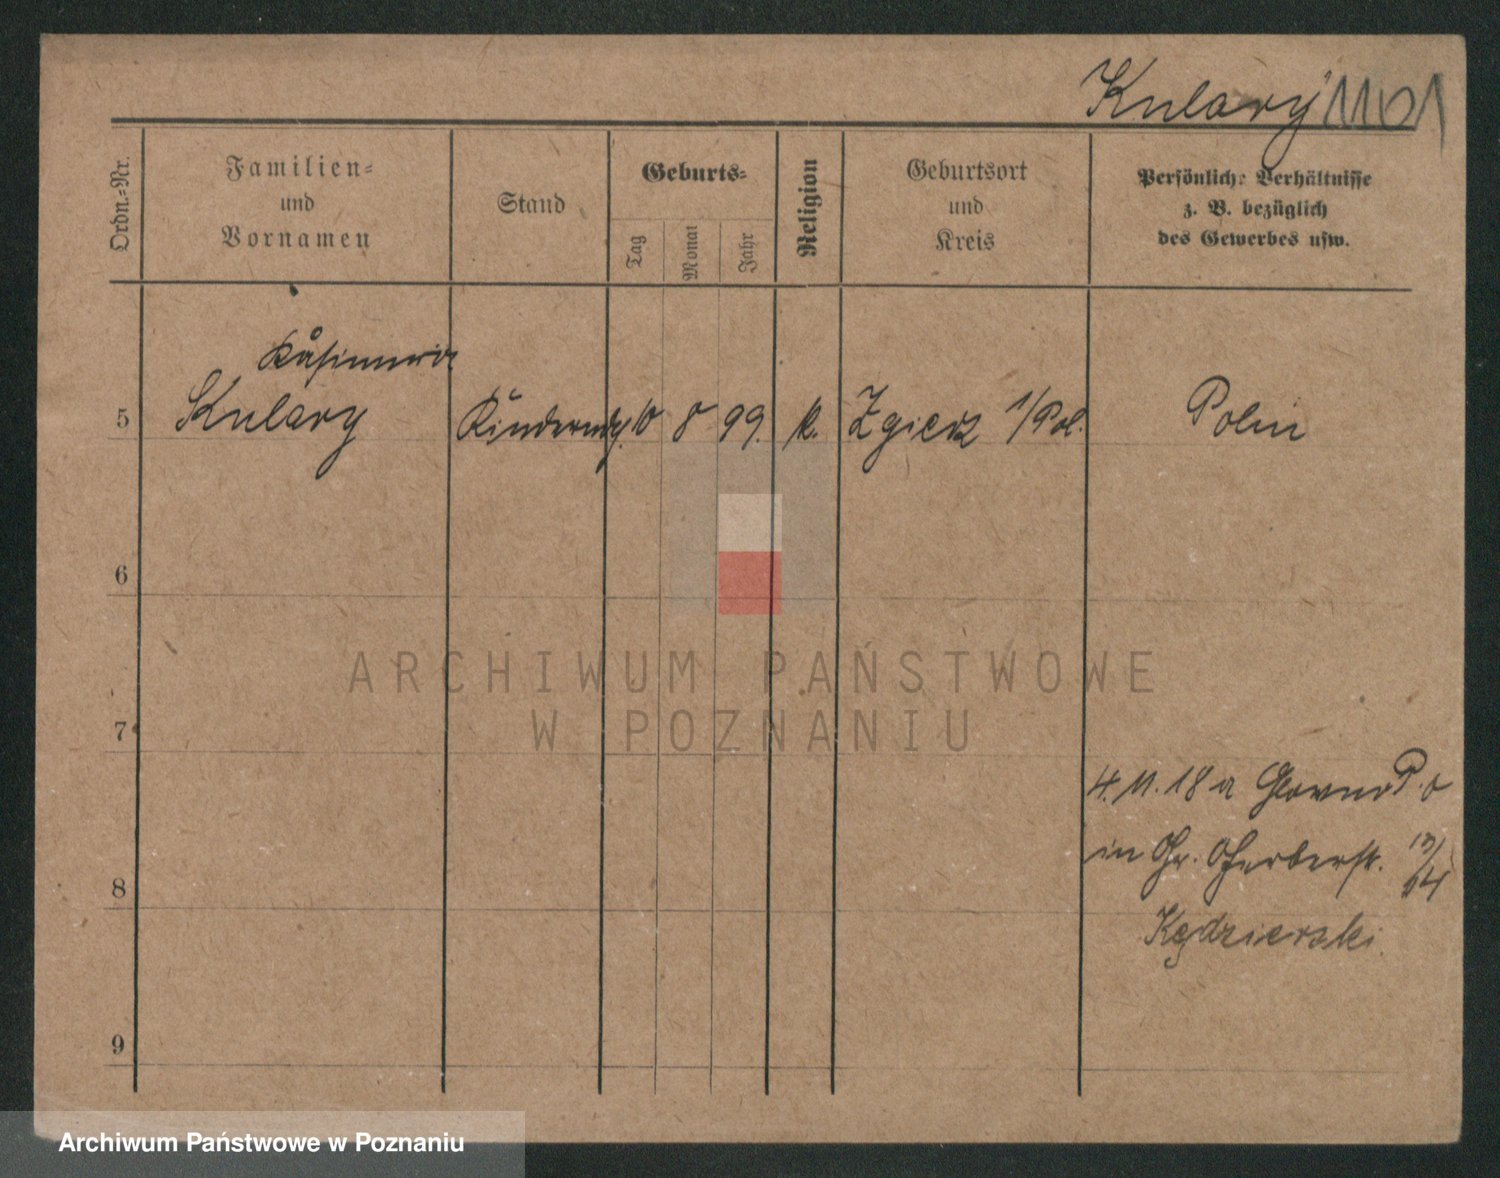 Kulary 1101
Ordn.-Nr.
Familien-
und
Vornamen
Stand
Geburts-
Tag
Monat
Jahr
Religion
Geburtsort
und
Kreis
Persönliche Verhältnisse
z. B. bezüglich
des Gewerbes usw.
Kasimira
5 Kulary Kindermdch. 10 8 99. k. Zgierz i/Pol. Polin
6
7
4. 11. 18 a Glowno P. o
in Gr. Gerberstr. 13/
8
Kędzierski
9
ARCHIWUM PAŃSTWOWE
W POZNANIU
Archiwum Państwowe w Poznaniu